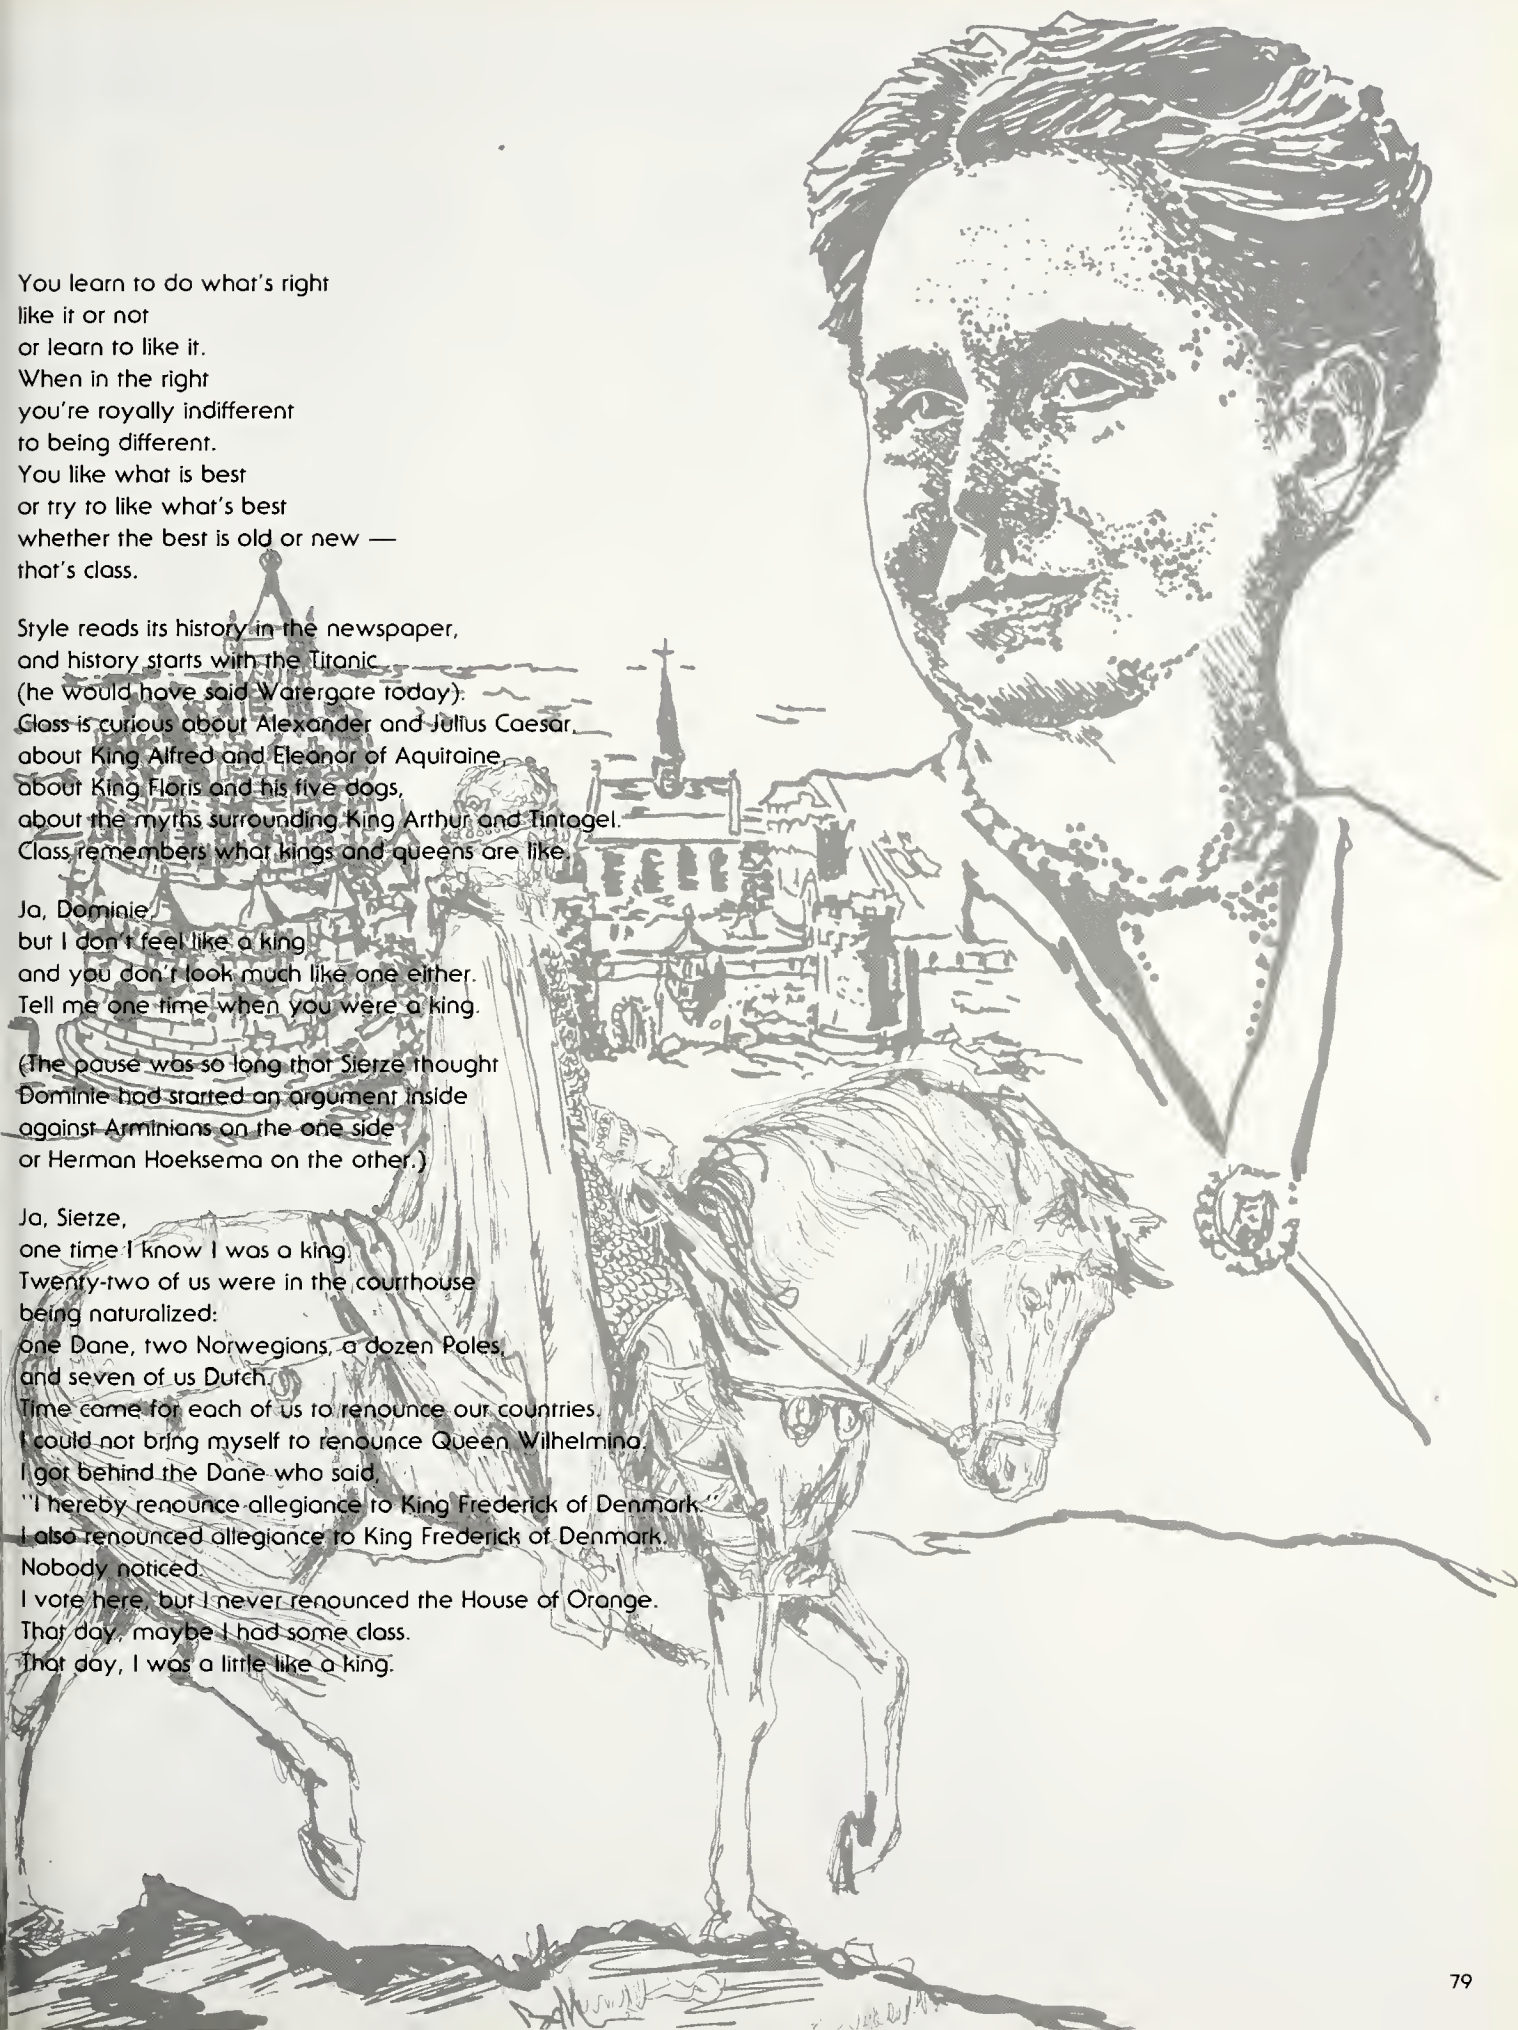 You learn to do what's right
like it or not
or learn to like it.
When in the right
you're royally indifferent
to being different.
You like what is best
or try to like what's best
whether the best is old or new —
that's class.

Style reads its history in the newspaper,
and history starts with the Titanic
(he would have said Watergate today).
Class is curious about Alexander and Julius Caesar,
about King Alfred and Eleanor of Aquitaine,
about King Floris and his five dogs,
about the myths surrounding King Arthur and Tintagel.
Class remembers what kings and queens are like.

Ja, Dominie,
but I don't feel like a king
and you don't look much like one either.
Tell me one time when you were a king.

(The pause was so long that Sietze thought
Dominie had started an argument inside
against Arminians on the one side
or Herman Hoeksema on the other.)

Ja, Sietze,
one time I know I was a king.
Twenty-two of us were in the courthouse
being naturalized:
one Dane, two Norwegians, a dozen Poles,
and seven of us Dutch.
Time came for each of us to renounce our countries.
I could not bring myself to renounce Queen Wilhelmina.
I got behind the Dane who said,
"I hereby renounce allegiance to King Frederick of Denmark."
I also renounced allegiance to King Frederick of Denmark.
Nobody noticed.
I vote here, but I never renounced the House of Orange.
That day, maybe I had some class.
That day, I was a little like a king.
79